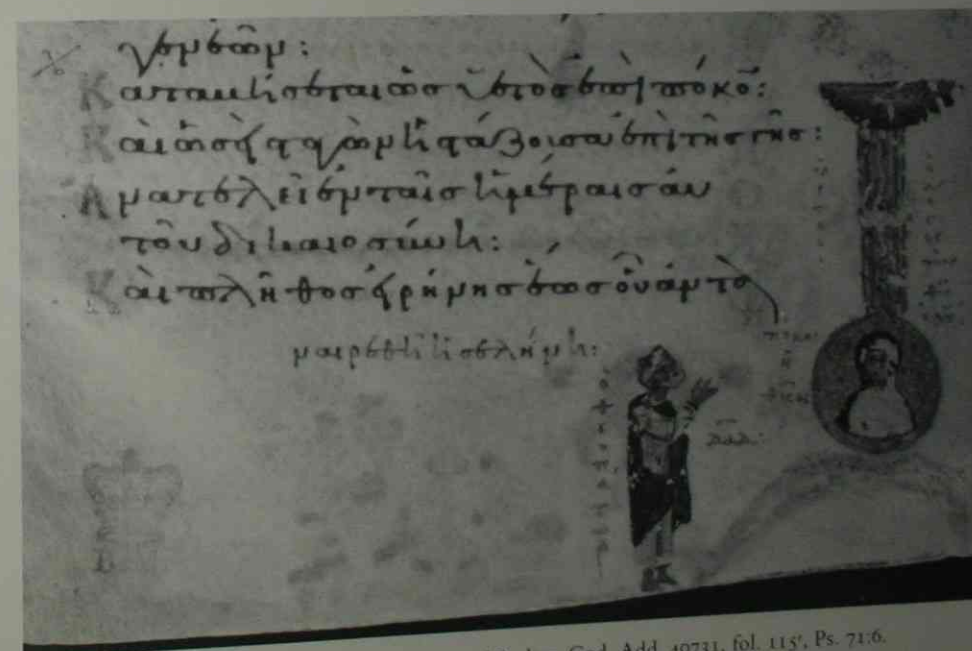 γενεῶν:
Καταβήσεται ὡς ὑετὸς ἐπὶ πόκον:
Καὶ ὡσεὶ σταγὼν ἡ στάζουσα ἐπὶ τῆς γῆς:
Ἀνατελεῖ ἐν ταῖς ἡμέραις αὐ
τοῦ δικαιοσύνη:
Καὶ πλῆθος εἰρήνης ἕως οὗ ἀντα
ναιρεθῆ ἡ σελήνη:
δαδ:
Cod. Add. 40731, fol. 115r, Ps. 71:6.